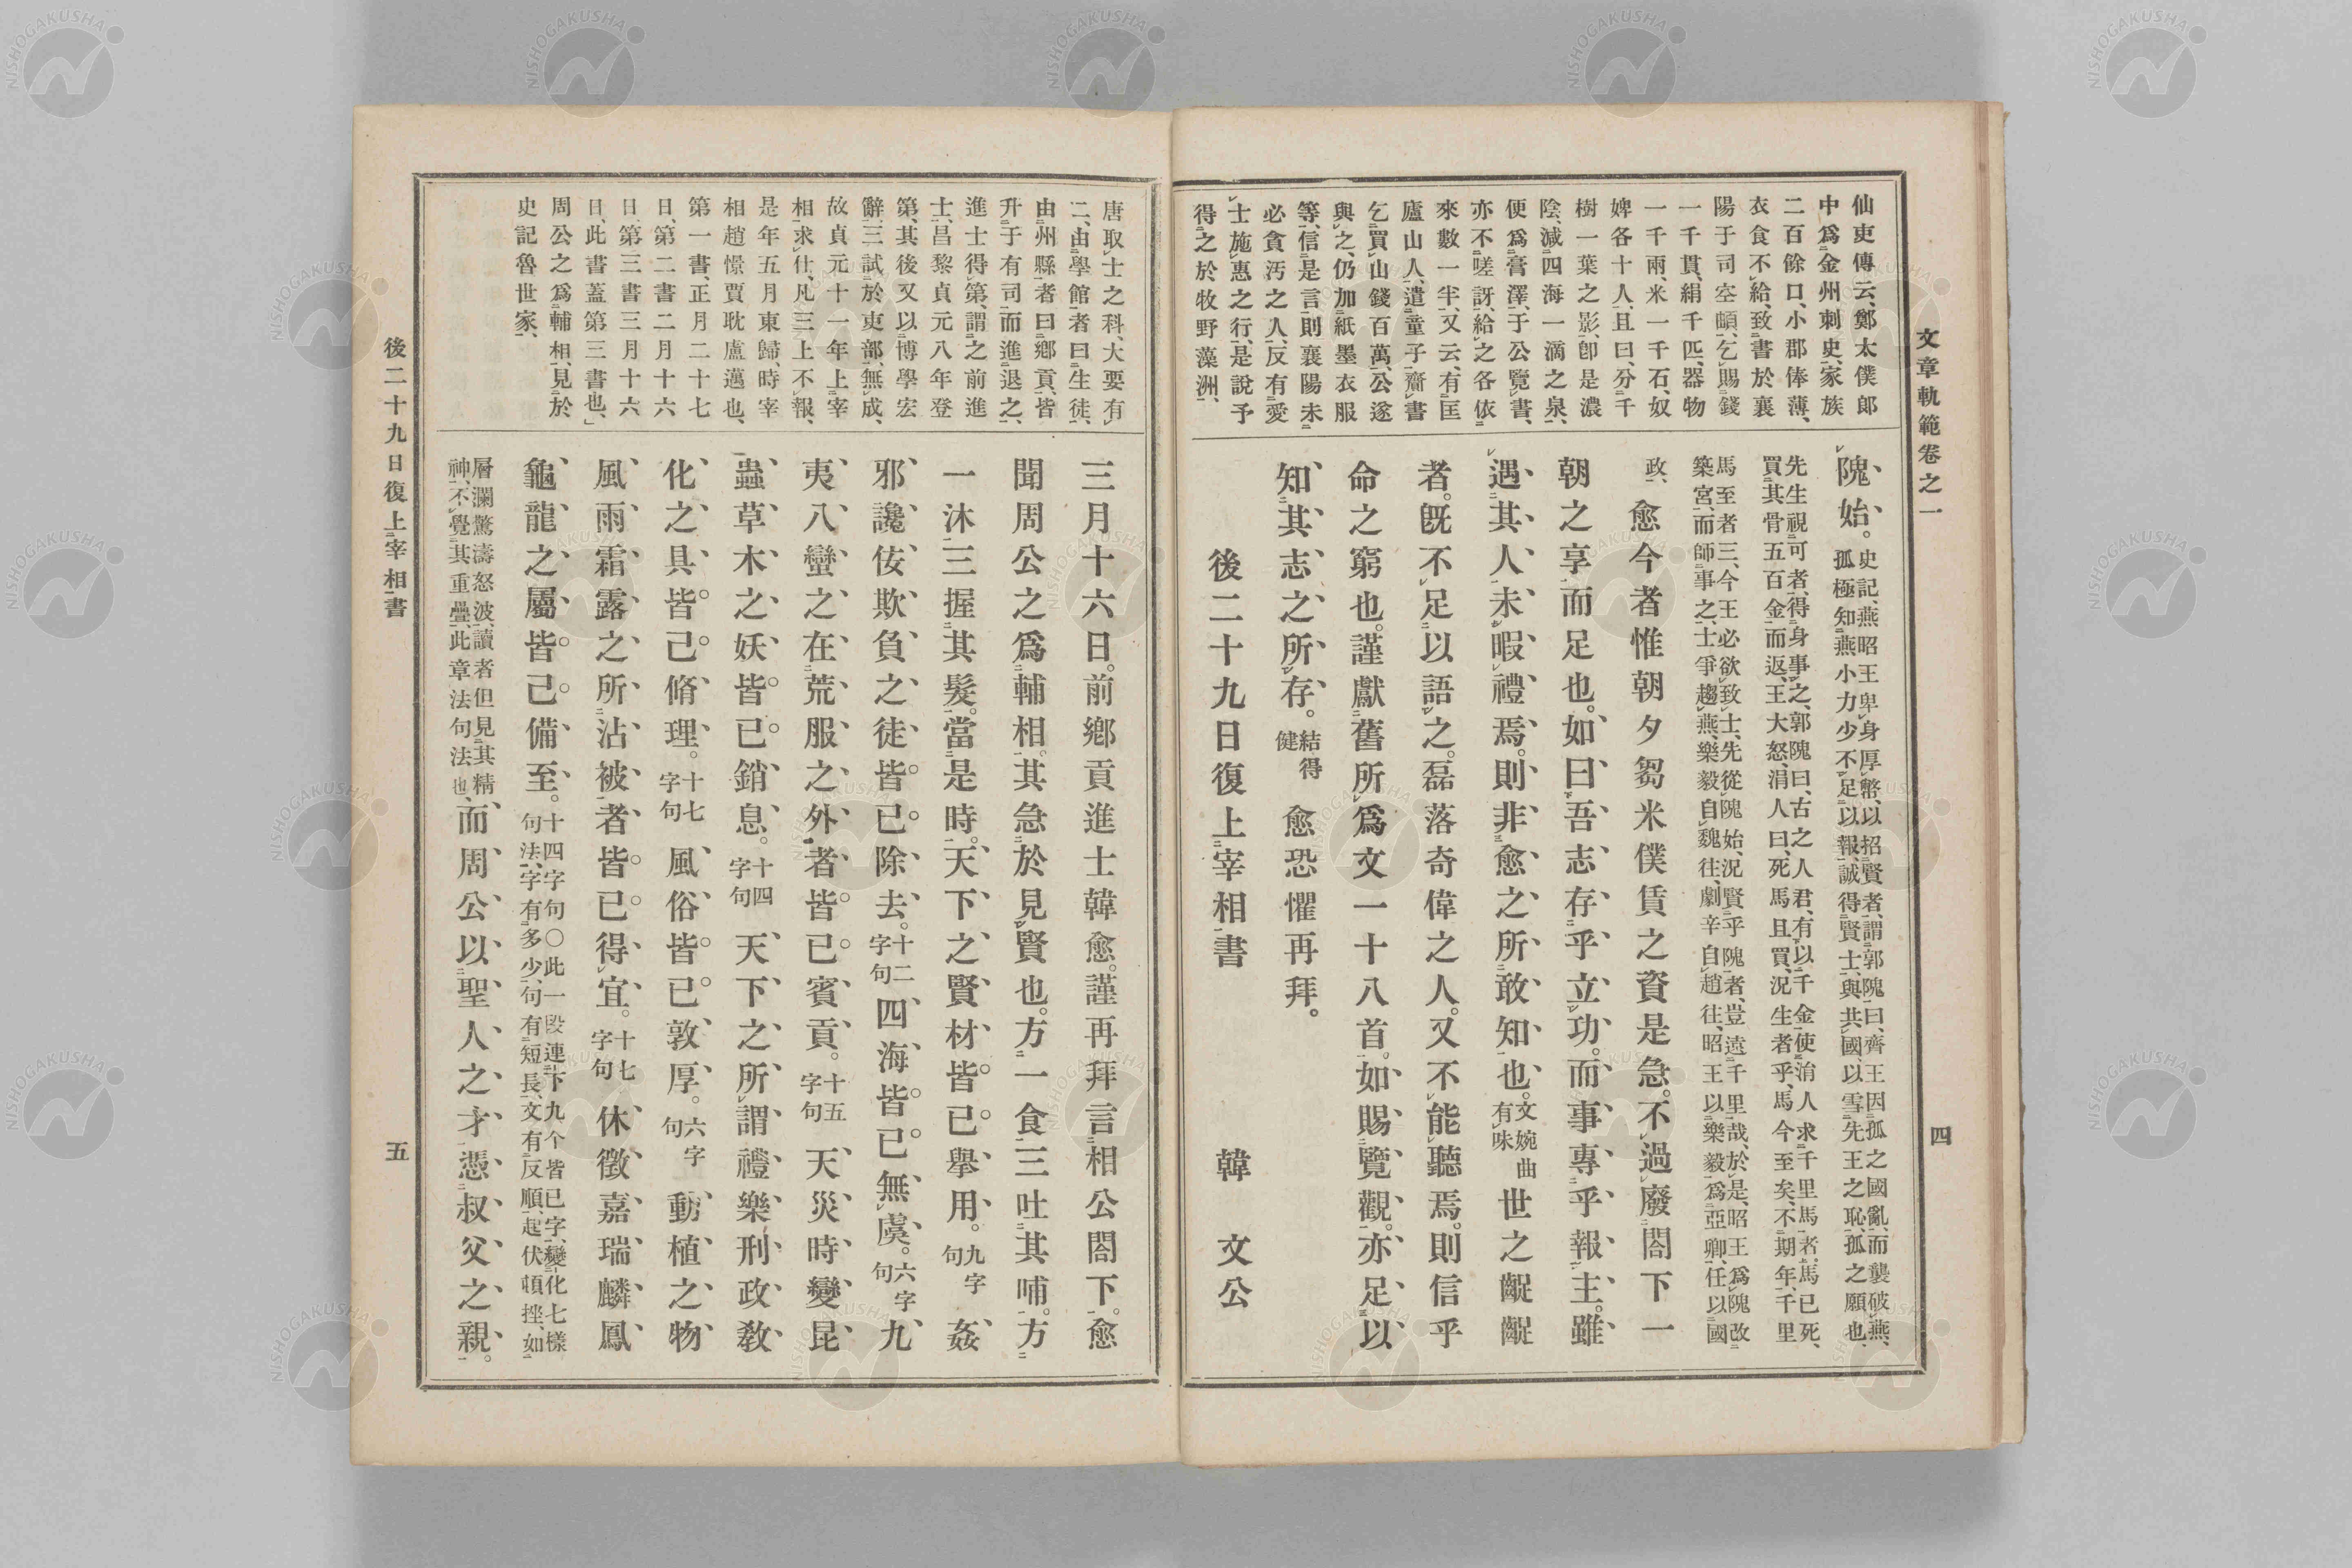 文章軌範卷之一
四
仙吏傳云、鄭太僕郎
中爲金州刺史、家族
二百餘口、小郡俸薄、
衣食不給、致書於襄
陽于司空頔、乞賜錢
一千貫、絹千匹、器物
一千兩、米一千石、奴
婢各十人、且曰、分千
樹一葉之影、卽是濃
陰、減四海一滴之泉、
便爲膏澤、于公覽書、
亦不嗟訝、給之各依
來數一半、又云、有匡
廬山人、遣童子齎書
乞買山錢百萬、公遂
與之、仍加紙墨衣服
等、信是言、則襄陽未
必貪汚之人、反有愛
士施惠之行、是說予
得之於牧野藻洲、
隗始。史記、燕昭王卑身厚幣、以招賢者、謂郭隗曰、齊王因孤之國亂、而襲破燕、
孤極知燕小力少不足以報、誠得賢士與共國、以雪先王之恥、孤之願也、
先生視可者、得身事之、郭隗曰、古之人君、有以千金使涓人求千里馬者、馬已死、
買其骨五百金而返、王大怒、涓人曰、死馬且買、況生者乎、馬今至矣、不期年、千里
馬至者三、今王必欲致士、先從隗始、況賢乎隗者、豈遠千里哉、於是、昭王爲隗改
築宮、而師事之、士爭趨燕、樂毅自魏往、劇辛自趙往、昭王以樂毅爲亞卿、任以國
政、愈今者惟朝夕芻米僕賃之資是急。不過廢閤下一
朝之享而足也。如曰吾志存乎立功。而事專乎報主。雖
遇其人、未暇禮焉。則非愈之所敢知也。文婉曲有味世之齪齪
者。旣不足以語之。磊落奇偉之人。又不能聽焉。則信乎
命之窮也。謹獻舊所爲文一十八首。如賜覽觀。亦足以
知其志之所存。結得健愈恐懼再拜。
後二十九日復上宰相書 韓文公
唐取士之科、大要有
二、由學館者曰生徒、
由州縣者曰鄕貢、皆
升于有司而進退之、
進士得第、謂之前進
士、昌黎貞元八年登
第、其後又以博學宏
辭、三試於吏部、無成、
故貞元十一年上宰
相求仕、凡三上不報、
是年五月東歸、時宰
相趙憬賈耽盧邁也、
第一書、正月二十七
日、第二書二月十六
日、第三書三月十六
日、此書蓋第三書也、」
周公之爲輔相、見於
史記魯世家、
三月十六日。前鄕貢進士韓愈。謹再拜言相公閤下。愈
聞周公之爲輔相。其急於見賢也。方一食三吐其哺。方
一沐三握其髮。當是時。天下之賢材皆已舉用。九字句姦
邪讒佞欺負之徒皆已除去。十二字句四海皆已無虞。六字句九
夷八蠻之在荒服之外者皆已賓貢。十五字句天災時變昆
蟲草木之妖皆已銷息。十四字句天下之所謂禮樂刑政敎
化之具皆已脩理。十七字句風俗皆已敦厚。六字句動植之物
風雨霜露之所沾被者皆已得宜。十七字句休徵嘉瑞麟鳳
龜龍之屬皆已備至。十四字句〇此一段連下九个皆已字、變化七樣
句法、字有多少、句有短長、文有反順、起伏頓挫、如
層瀾驚濤怒波、讀者但見其精
神、不覺其重疊、此章法句法也、而周公以聖人之才。憑叔父之親。
後二十九日復上宰相書
五